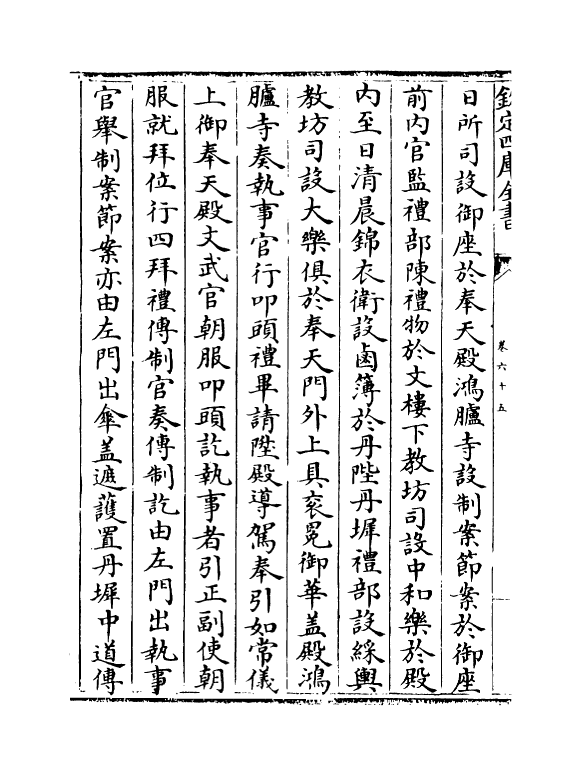 欽定四庫全書
卷六十五
日所司設御座於奉天殿鴻臚寺設制案節案於御座
前内官監禮部陳禮物於文樓下教坊司設中和樂於殿
内至日清晨錦衣衛設鹵簿於丹陛丹墀禮部設綵輿
教坊司設大樂俱於奉天門外上具衮冕御華盖殿鴻
臚寺奏執事官行叩頭禮畢請陞殿導駕奉引如常儀
上御奉天殿文武官朝服叩頭訖執事者引正副使朝
服就拜位行四拜禮傳制官奏傳制訖由左門出執事
官舉制案節案亦由左門出傘盖遮護置丹墀中道傳